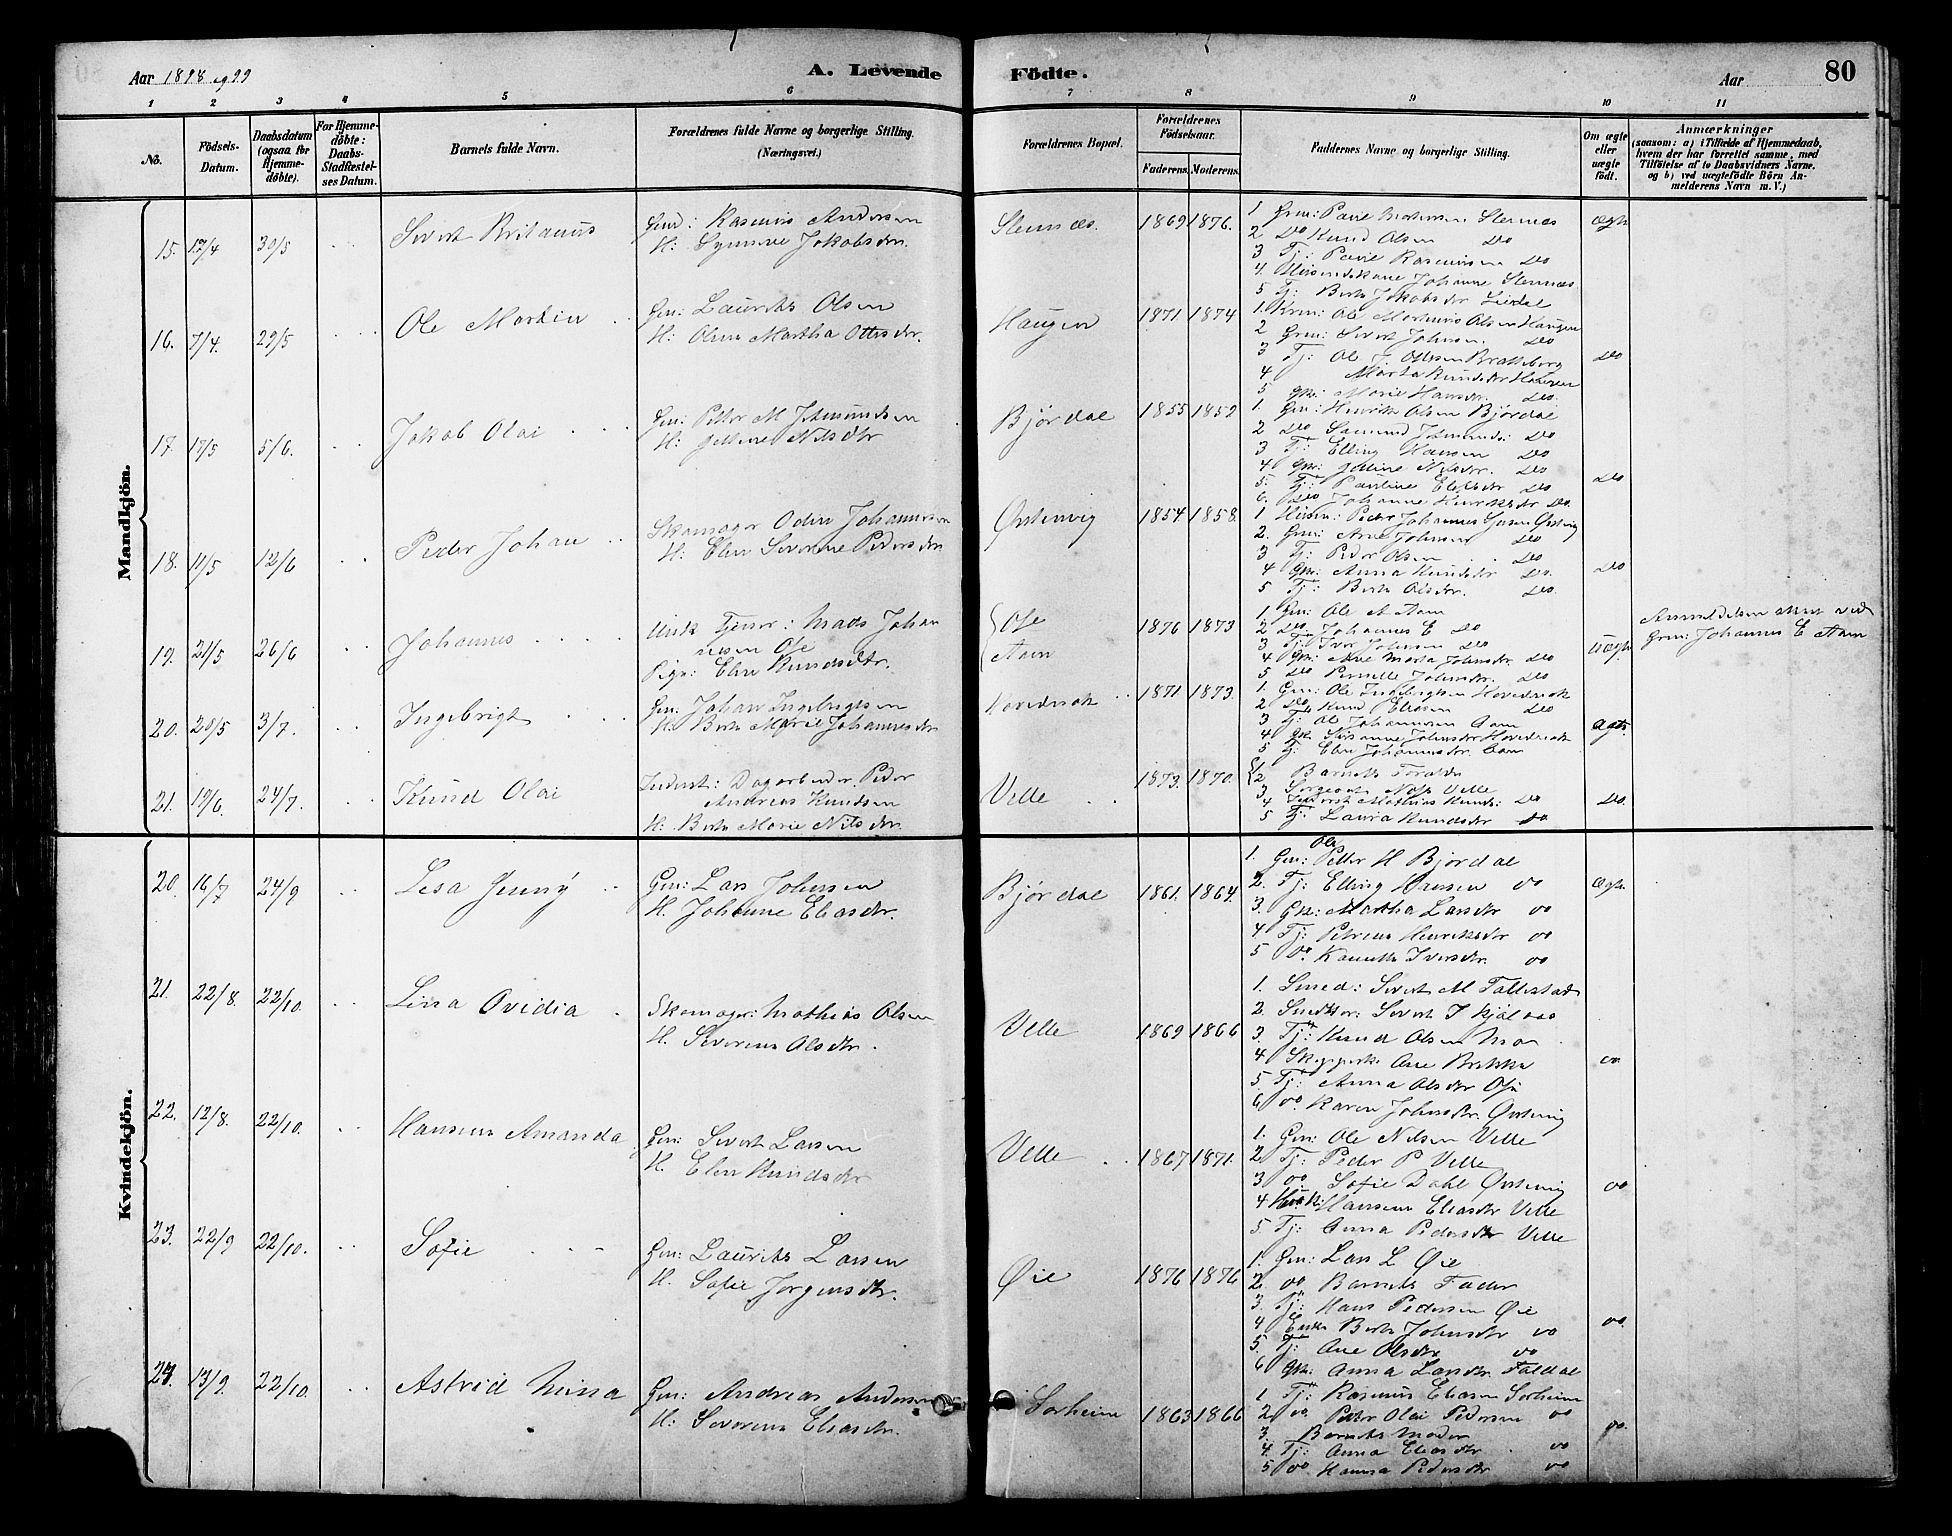 Aar 1898 og 99
A. Levende Födte.
Aar
80
1 2 3 4 5 6 7 8 9 10 11
No.
Födsels-Datum.
Daabsdatum (ogsaa for Hjemme-döbte).
For Hjemme-döbte: Daabs-Stadfæstel-ses Datum.
Barnets fulde Navn.
Forældrenes fulde Navne og borgerlige Stilling.
(Næringsvei.)
Forældrenes Bopæl.
Forældrenes Födselsaar.
Faderens. Moderens.
Faddernes Navne og borgerlige Stilling.
Om ægte eller uægte födt.
Anmærkninger
(saasom: a) i Tilfælde af Hjemmedaab, hvem der har forrettet samme, med Tilföielse af to Daabsvidners Navne. og b) ved uægtefödte Börn An-melderens Navn m. V.)
Mandkjön.
15. 17/4 30/5 Sivert
Rasmus Andersen
H: Synneve Jakobsdtr.
Stennes. 1869 1876.
2 Do Knud Olsen Do
3 Tj: Rasmussen Do
Johanne Stennes
5 Tj: Berte Jakobsdtr
Ægte
16. 7/4. 29/5 Ole Martin
Gm: Laurits Olsen
H: Oline Martha Ottesdtr.
Haugen 1871 1874
1. Ole Olsen Haugen
2 Gm: Sivert Johnsen. Do
3 Tj: Ole J. Ottesen Bratteberg
4 Marta Knudsdtr
5 Marie Hansdtr. Do.
Do
17. 17/5 5/6. Jakob Olai
Gm: Petter M
H: Nilsdtr
Bjørdal 1855 1859
1. Gm: Henrik Olsen Bjørdal
2 Do Do
3 Tj: Elling Hansen Do
4 Nilsdtr. Do
5. Tj: Pauline Do
6. Do Johanne Henriksdtr Do.
Do
18. 11/5 12/6 Peder Johan
Skomager Johannesen
H: Elen Severine Pedersdtr
Ørstenvig 1854 1858.
1 Peder Johannes
2. Gm: Arne Johnsen Do
3 Tj: Peder Olsen Do
4 Anna Knudsdtr Do.
5 Tj: Berte Olsdtr. Do.
Do
19. 21/5 26/6 Johannes
Tjener: Mads Johan
nesen Ose
Pige: Elen Knudsdtr.
Ose
Aam
1876 1873
1 Gm: Ole A Aam
2 Do Johannes E Do
3 Tj: Iver Johnsen Do
4 Ane Marta Johnsdtr Do
5 Do Pernille Johnsdtr. Do
Uægte
ved
Gm: Johannes E Aam
20. 20/5 3/7. Ingebrigt
Gm. Johan Ingebrigtsen
H. Berte Marie Johannesdtr
1871. 1873.
1. Gm: Ole Ingebrigtsen
2 Do Knud Eliasen Do
3 Tj: Ole Johannesen Aam
4 Johnsdtr
5 Tj: Elen Johannesdtr. Aam
Ægte
21. 19/6 24/7. Knud Olai
Inderst: Dagarbeider Peder
Andreas Knudsen
H: Berte Marie Nilsdtr.
Velle 1873. 1870.
1 2 Barnets Forældre
3 Sergeant Velle
4 Inderst Mathias Knuds: Do
5 Tj: Laura Knudsdtr Do
Do.
Kvindekjön.
20. 16/7 24/9 Lesa Jenny
Gm: Lars Johnsen
H. Johanne Eliasdtr.
Bjørdal 1861. 1864.
Ole
1. Gm: Petter H Bjørdal
2. Tj: Elling Hansen do
3. Gk: Martha Larsdtr do
4 Tj: Petrine Henriksdtr do
5 do. Iversdtr. do
Ægte
21. 22/8. 22/10. Lina Ovidia
Skomager: Mathias Olsen
H. Severine Olsdtr.
Velle 1869 1866
1. Smed: Sivert M
2. Sivert I
3. Tj: Knud Olsen Mo
4 Ane Brekke
5. Tj: Anna Olsdtr Ose
6 do. Karen Johnsdtr. Ørstenvig
do
22. 12/8. 22/10. Hansine Amanda
Gm: Sivert Larsen
H. Elen Knudsdtr
Velle 1867 1871.
1. Gm: Ole Nilsen Velle
2 Tj: Peder P Velle
3 do. Sofie Dahl Ørstenvig
4 Hansine Eliasdtr Velle
5 Tj: Anna Pedersdtr Velle
do
23. 22/9 22/10. Sofie
Gm: Laurits Larsen
H. Sofie Jørgensdtr.
Øie 1876 1876
1. Gm: Lars L Øie
2 do Barnets Fader
3. Tj: Hans Pedersen Øie
4 Enke Berte Johnsdtr do
5. Tj: Ane Olsdtr do
6 Gk: Anna Larsdtr
do.
24. 13/9. 22/10. Astrid Nina
Gm: Andreas Andersen
H: Severine Eliasdtr.
Sørheim 1863 1866
1 Tj: Rasmus Eliasen Sørheim
2 do. Peter Olai Pedersen do
3. Barnets Moder
4. Tj: Anna Eliasdtr. do
5 do. Hanna Pedersdtr do
do.